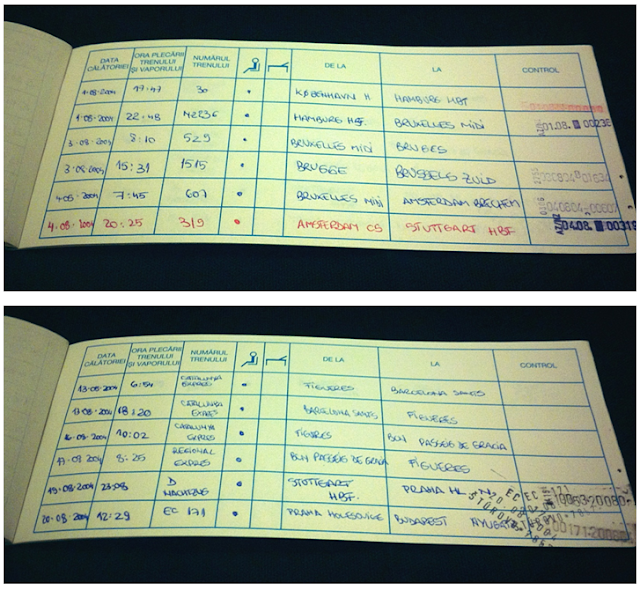 DATA CĂLĂTORIEI ORA PLECĂRII TRENULUI ȘI VAPORULUI NUMĂRUL TRENULUI DE LA LA CONTROL
1-08-2004 17:47 30 KØBENHAVN H HAMBURG HBF
1-08-2004 22:48 42236 HAMBURG HBF. BRUXELLES MIDI 01.08.
3-08-2004 8:10 529 BRUXELLES MIDI BRUGES
3-08-2004 15:31 1515 BRUGGE BRUSSELS ZUID
4-08-2004 7:45 607 BRUXELLES MIDI AMSTERDAM
4-08-2004 20:25 319 AMSTERDAM CS STUTTGART HBF 04.08. 00319
DATA CĂLĂTORIEI ORA PLECĂRII TRENULUI ȘI VAPORULUI NUMĂRUL TRENULUI DE LA LA CONTROL
13-08-2004 6:54 CATALUNYA EXPRES FIGUERES BARCELONA SANTS
13-08-2004 18:20 CATALUNYA EXPRES BARCELONA SANTS FIGUERES
16-08-2004 10:02 CATALUNYA EXPRES FIGUERES BCN PASSEIG DE GRACIA
17-08-2004 8:25 REGIONAL EXPRES BCN PASSEIG DE GRACIA FIGUERES
19-08-2004 D NACHTZUG STUTTGART HBF. PRAHA HL. N. EC EC 171
20-08-2004 12:29 EC 171 PRAHA HOLESOVICE BUDAPEST